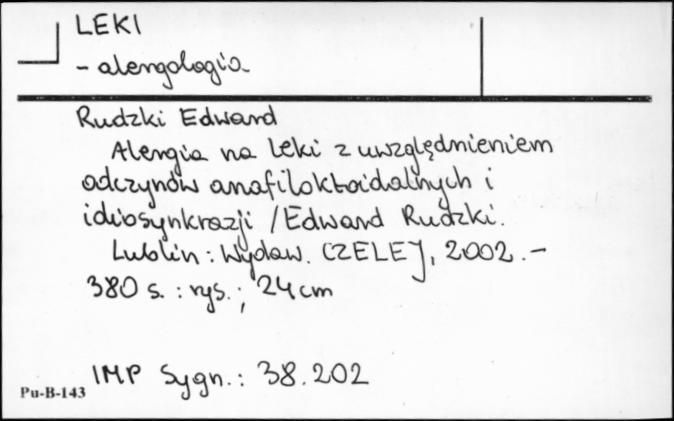 LEKI
- alergologia
Rudzki Edward
Alergia na leki z uwzględnieniem
odczynów anafilaktoidalnych i
idiosynkrazji / Edward Rudzki.
Lublin : Wydaw. CZELEJ, 2002. -
380 s. : rys. ; 24 cm
IMP Sygn.: 38.202
Pu-B-143